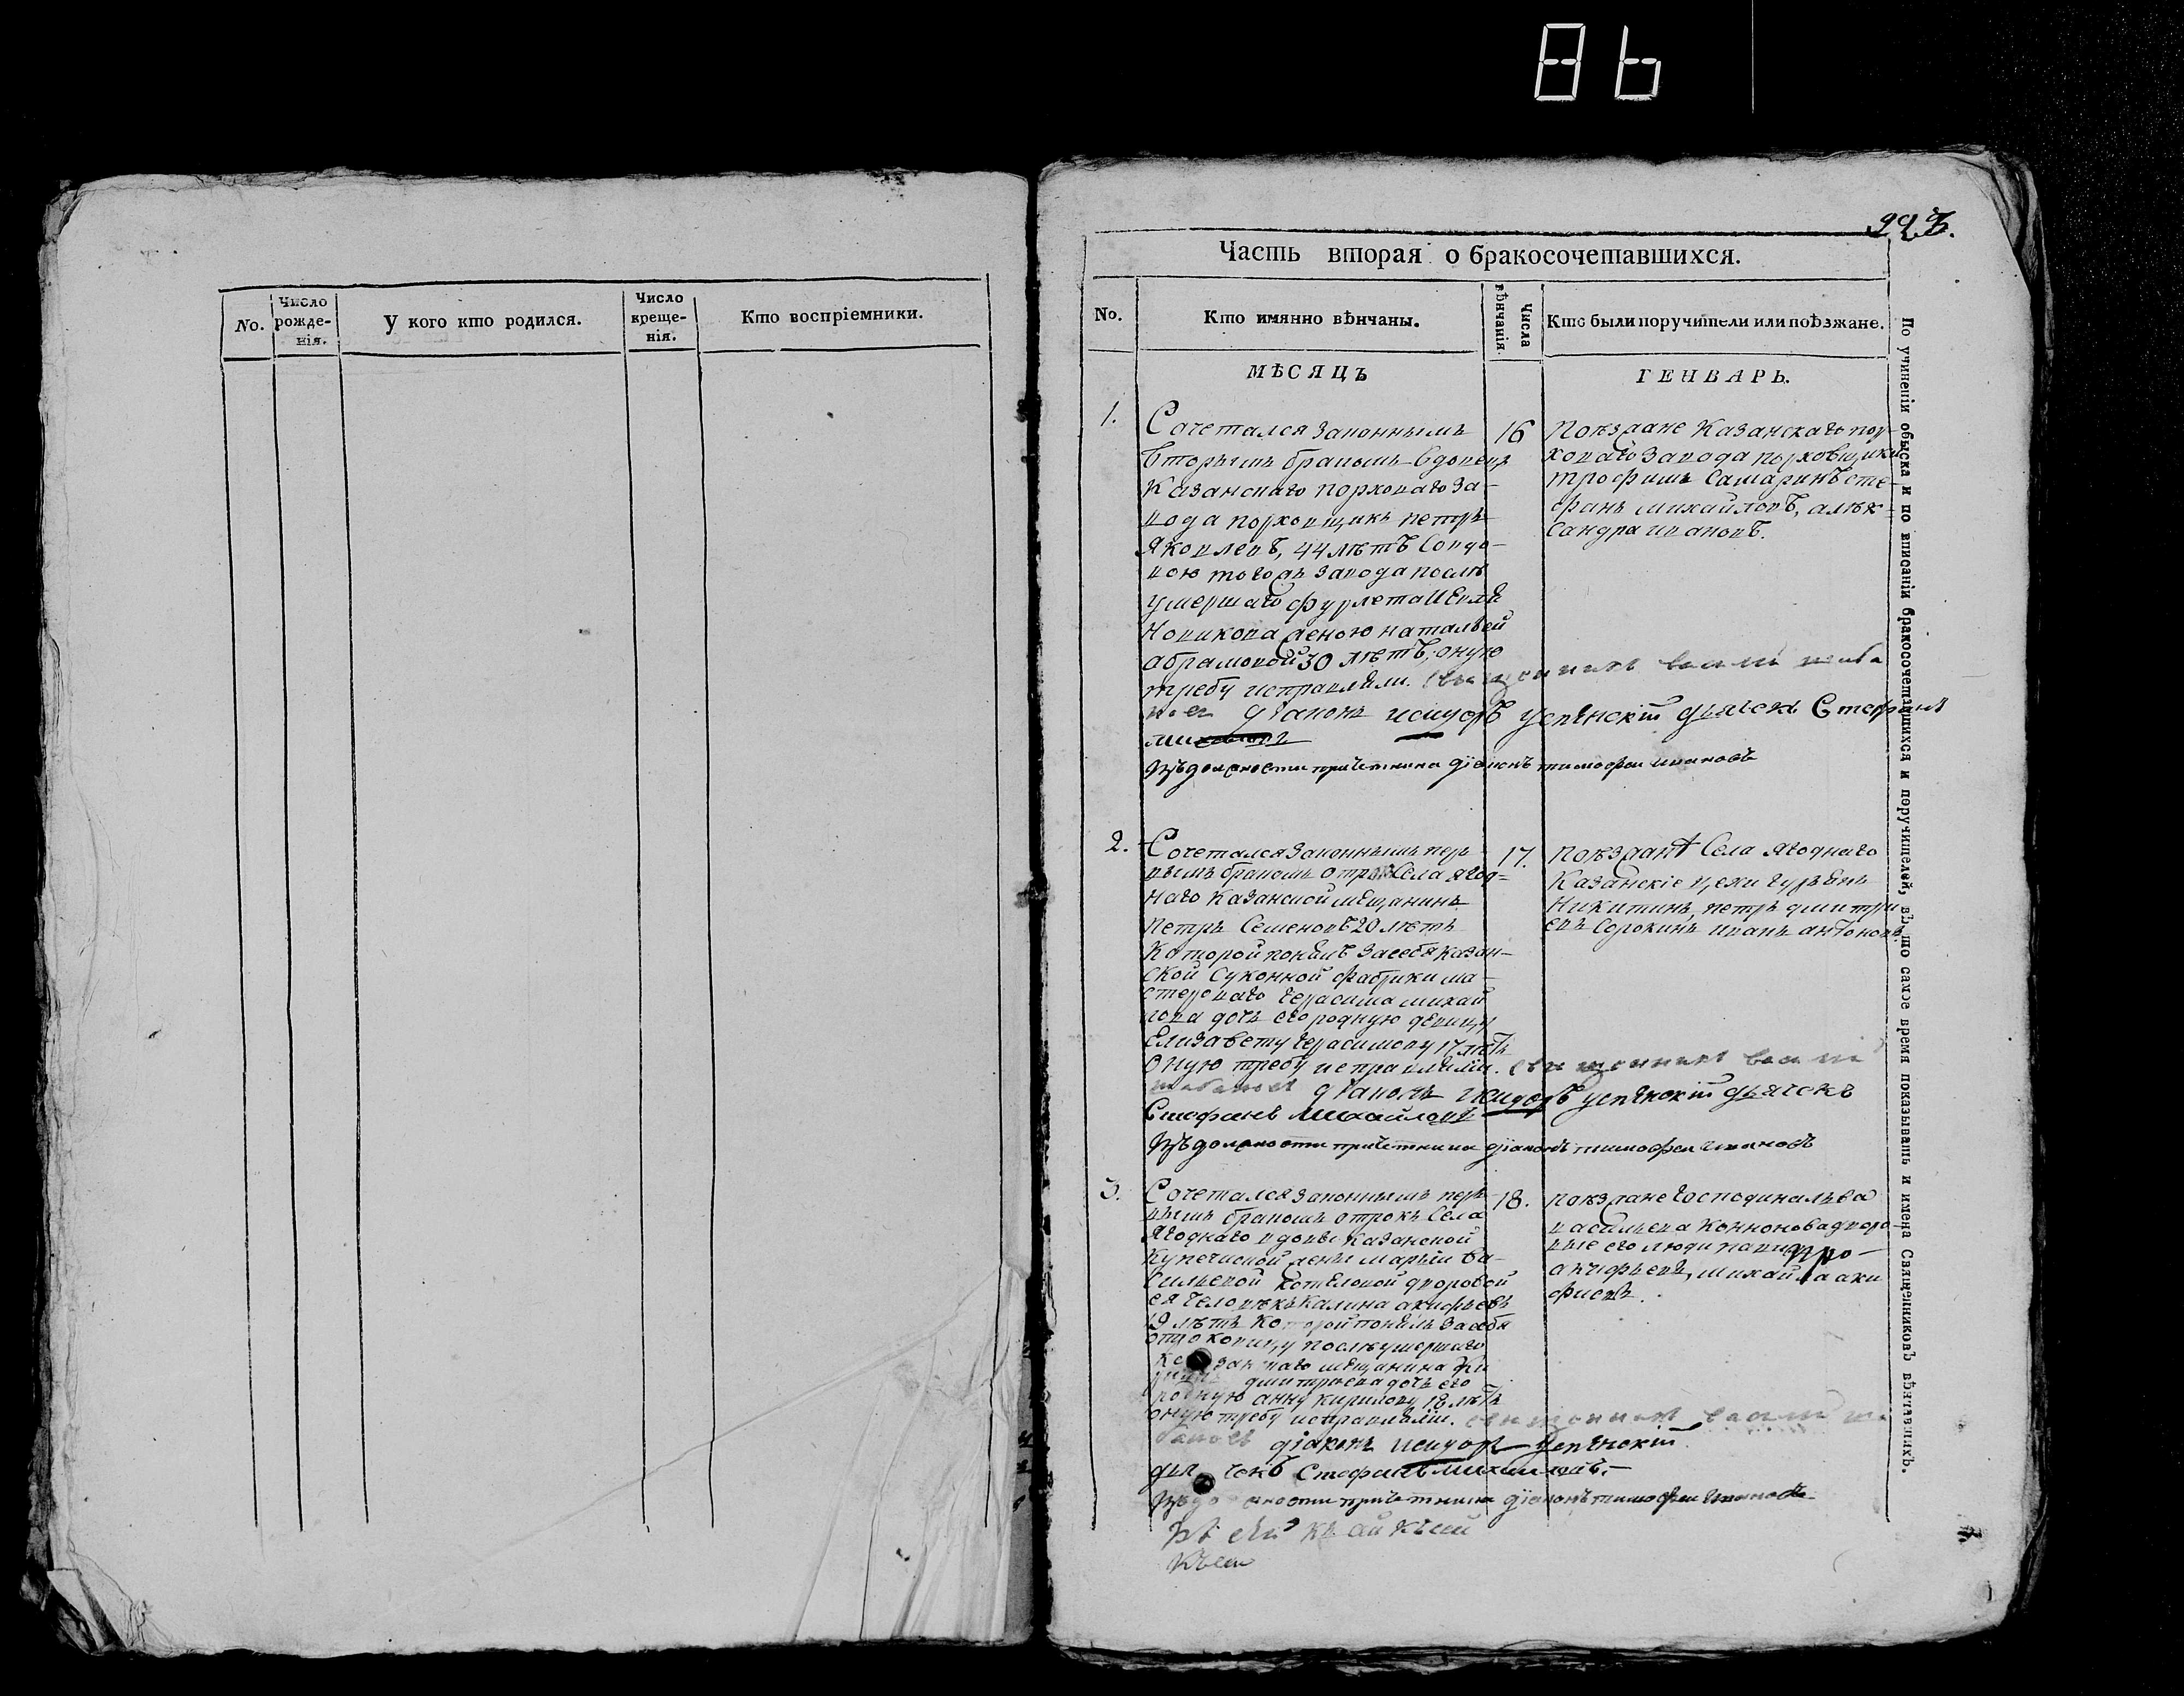 86
No.
Число рожде-нія.
У кого кто родился.
Число креще-нія.
Кто воспріемники.
Часть вторая о бракосочетавшихся.
No.
Кто имянно вѣнчаны.
Числа вѣнчанія.
Кто были поручители или поѣзжане.
МѢСЯЦЪ
ГЕНВАРЬ.
1.
Сочетался законнымъ
вторымъ бракомъ вдовецъ
Казанскаго порховаго за-
вода порховщикъ петръ
Яковлевъ, 44 лѣтъ совдо-
вою тогожъ завода послѣ
умершаго
Новикова женою натальей
абрамовой 30 лѣтъ, оную
требу исправляли. священникъ
діаконъ исидоръ успенскій дьячекъ Стефанъ
должности причетника діаконъ тимофеи ивановъ
16
поѣзжане Казанскаго пор-
ховаго завода порховщики
трофимъ Самаринъ сте-
фанъ михайловъ, алек-
сандра ивановъ.
2.
Сочетался законнымъ пер
вымъ бракомъ отрокъ Села ягод=
наго Казанской мещанинъ
петръ Семеновъ 20 лѣтъ
Которой понялъ за себя казан-
ской Суконной фабрики ма-
стероваго герасима михай
лова дочь его родную девицу
Елизавету герасимову 17 лѣтъ
Оную требу исправляли. священникъ
діаконъ исидоръ успенскій дьячекъ
Стефанъ Михайловъ
должности причетника діаконъ тимофеи ивановъ
17.
поѣзжанѣ Села ягоднаго
Казанскіе цехи гурьенъ
Никитинъ, петръ дмитри
евъ Сорокинъ иванъ антоновъ.
3.
Сочетался законнымъ пер
вымъ бракомъ отрокъ Села
Ягоднаго вдовы казанской
Купеческой жены марьи ва-
сильевой Котеловой дворовой
ея человѣкъ Калина акифьевъ
19 лѣтъ Которой понялъ за себя
послѣ умершаго
мещанина
дмитриева дочь его
родную анну кирилову 18 лѣтъ
оную требу исправляли. священникъ
діаконъ исидоръ успенскій
Стефанъ михайловъ.
причетника діаконъ тимофеи ивановъ
18.
поѣзжане господина льва
васильева
его люди
акифьевъ, михайла аки
фиевъ.
По учиненіи обыска и по вписаніи бракосочетавшихся и поручителей, въ то самое время показывать и имена Священниковъ вѣнчавшихъ.